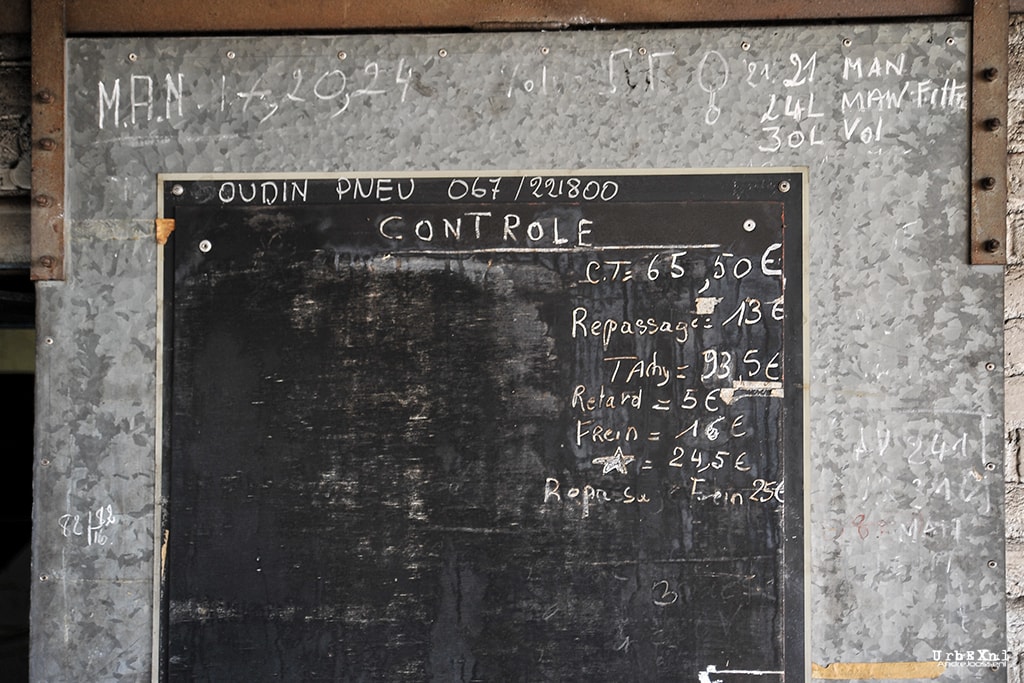 M.A.N 17,20,24 Vol. 21.21 MAN
24L MAN
30L Vol
OUDIN PNEU 067/221800
CONTROLE
C.T= 65,50€
Repassage= 13€
TAchy= 93,5€
Retard = 5€
Frein = 16€
☆ = 24,5€
Frein 25€
82
241
MAN
3
UrbEXnl